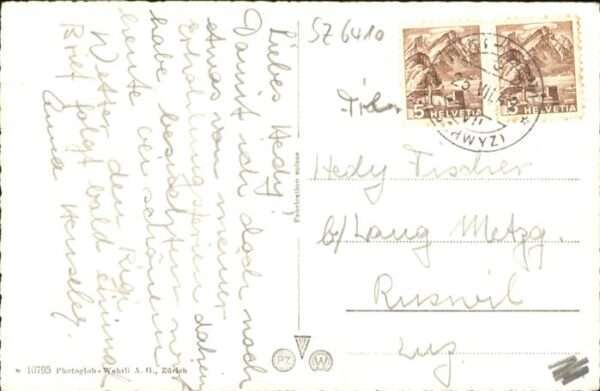 Liebes Hedy!
Damit ich doch noch
etwas von meiner
Erholungsferien daheim
habe besichtigten wir
heute bei schönem
Wetter den Rigi.
Brief folgt bald einmal
Anna
SZ 6410
5 HELVETIA
5 HELVETIA
(SCHWYZ)
Frl.
Hedy Fischer
b/ Lang Metzg.
Ruswil
Luz.
10795 Photoglob-Wehrli A. G., Zürich
PZ
W